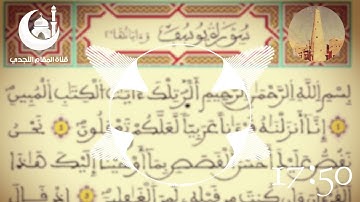 قناة المقام النجدي
سُورَةُ يُوسُفَ
بِسْمِ اللَّهِ الرَّحْمَٰنِ الرَّحِيمِ الٓر تِلْكَ ءَايَٰتُ الْكِتَٰبِ الْمُبِينِ
١ إِنَّا أَنزَلْنَٰهُ قُرْءَٰنًا عَرَبِيًّا لَّعَلَّكُمْ تَعْقِلُونَ ٢ نَحْنُ
نَقُصُّ عَلَيْكَ أَحْسَنَ الْقَصَصِ بِمَا أَوْحَيْنَا إِلَيْكَ هَٰذَا
17:50